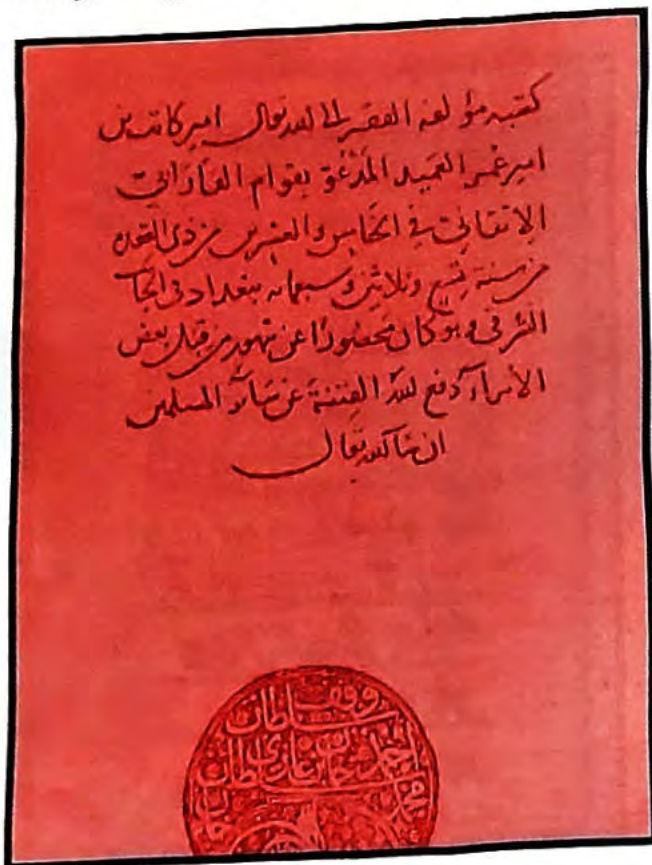 كتبه مؤلفه الفقير الى الله تعالى امير كاتب بن
امير عمر العميد المَدْعُوّ بقوام الفارابي
الاتقاني في الخامس والعشرين من ذي القعدة
من سنة تسع وثلاثين وسبعمائة ببغداد في الجانب
الشرقي وهو كان محصورًا عن شهور من قبل بعض
الأمراء دفع الله الفتنة عن سائر المسلمين
ان شاء الله تعالى
وقف
سلطان
احمد خان غازي
سلطان